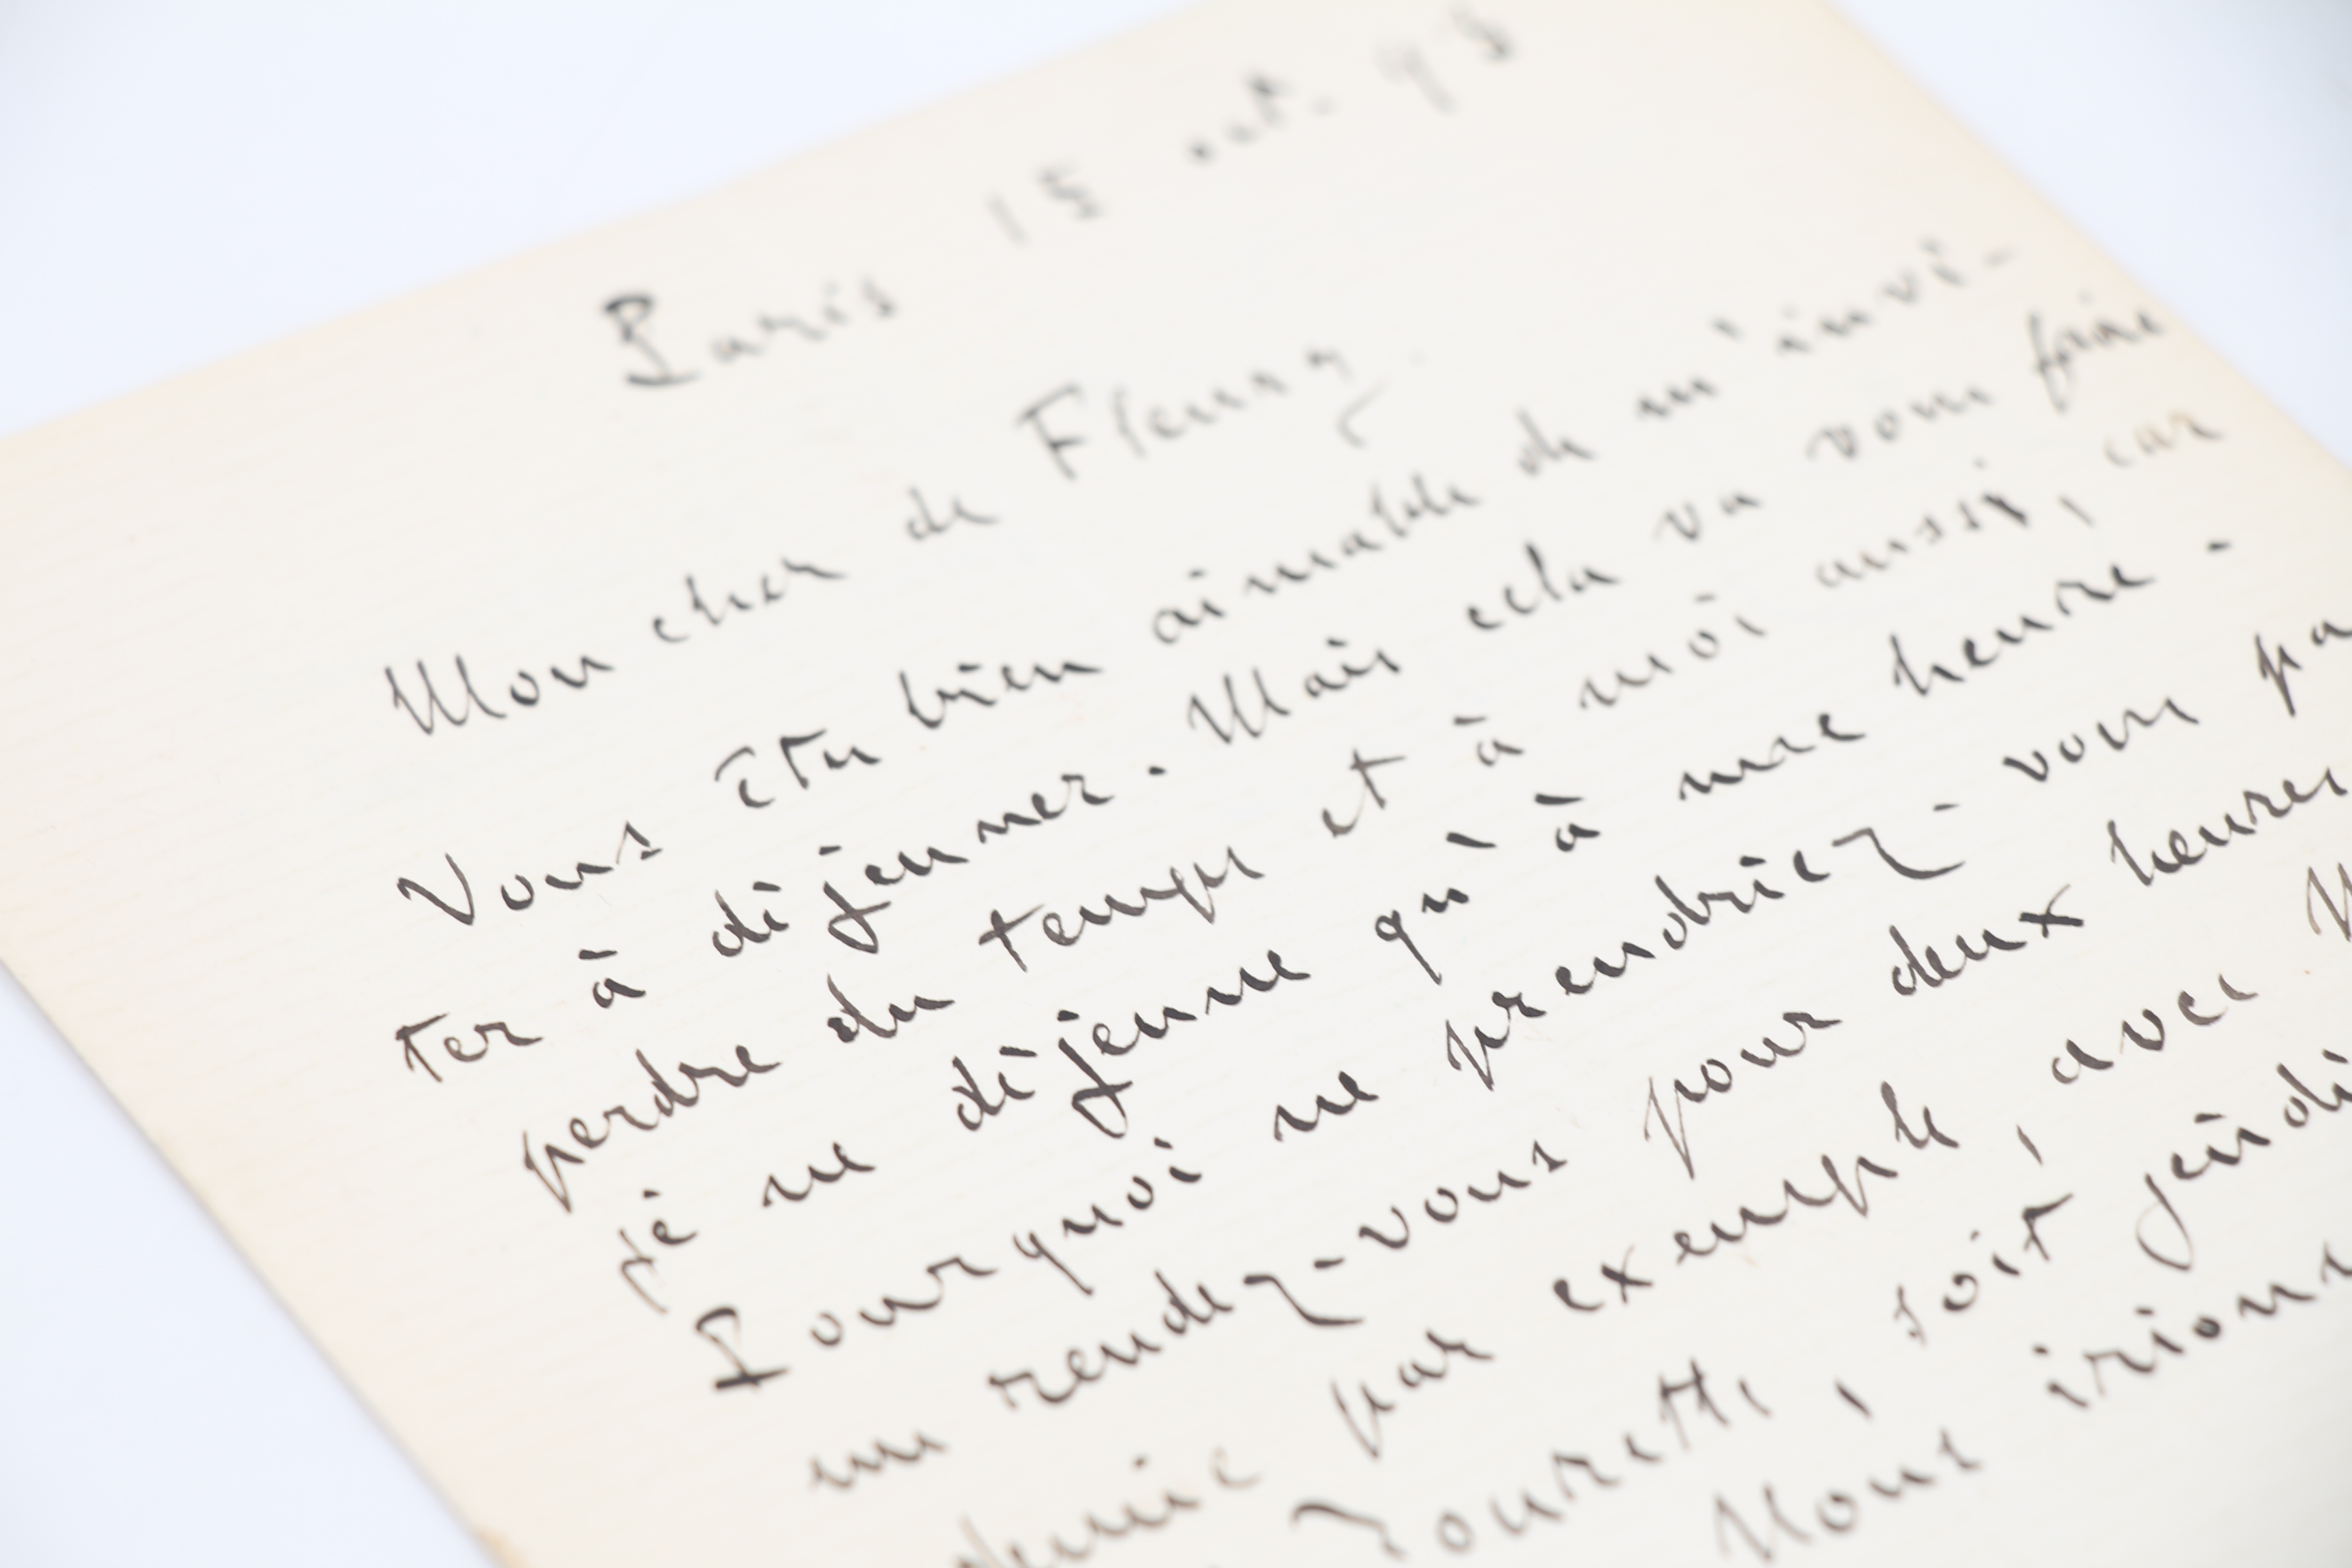 Paris 15 oct. 98
Mon cher de Fleury.
Vous êtes bien aimable de m'invi-
ter à déjeuner. Mais cela va vous faire
perdre du temps et à moi aussi, car
je ne déjeune qu'à une heure.
Pourquoi ne prendriez-vous pa
un rendez-vous pour deux heures
demie par exemple, avec
Tourette, soit jeudi
Nous irions